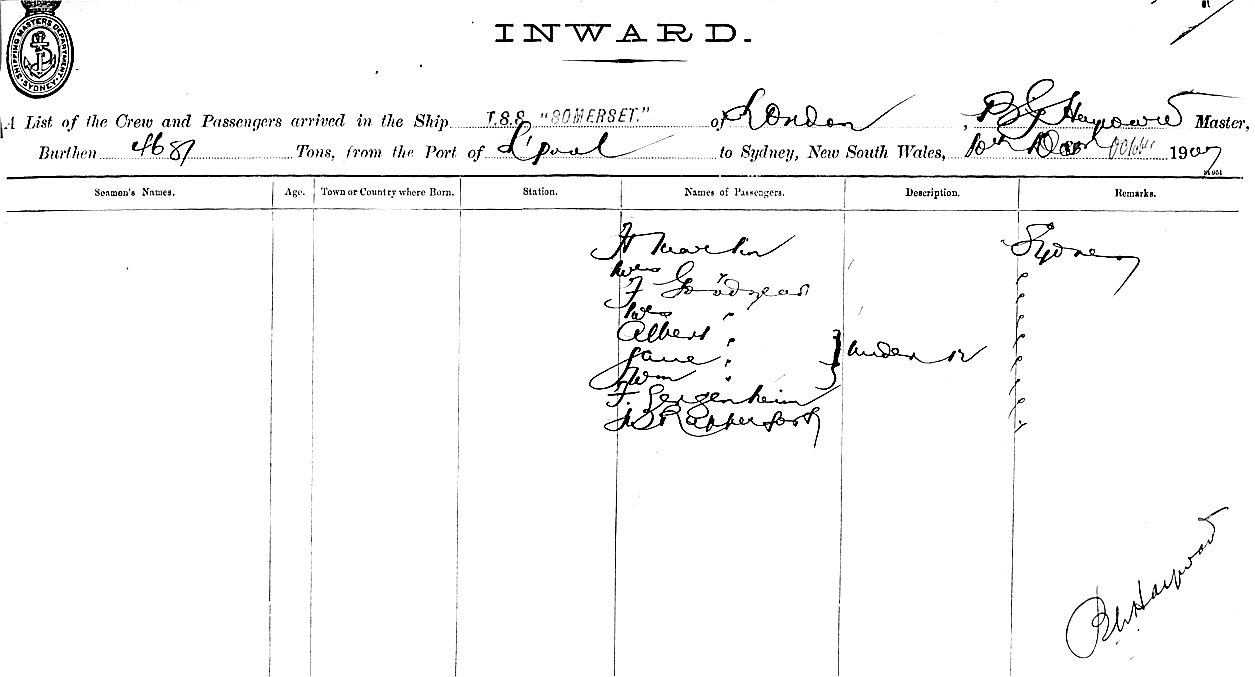 SHIPPING MASTERS DEPARTMENT SYDNEY
INWARD.
A List of the Crew and Passengers arrived in the Ship T.S.S. "SOMERSET." of London, Master,
Burthen 4681 Tons, from the Port of L'pool to Sydney, New South Wales, 10th October 1907
Seamen's Names. Age. Town or Country where Born. Station. Names of Passengers. Description. Remarks.
H Martin Sydney
Mrs "
F Goodyear "
Mrs " "
Albert " "
Jane " } under 12 "
Wm " "
F. "
"
Hayward